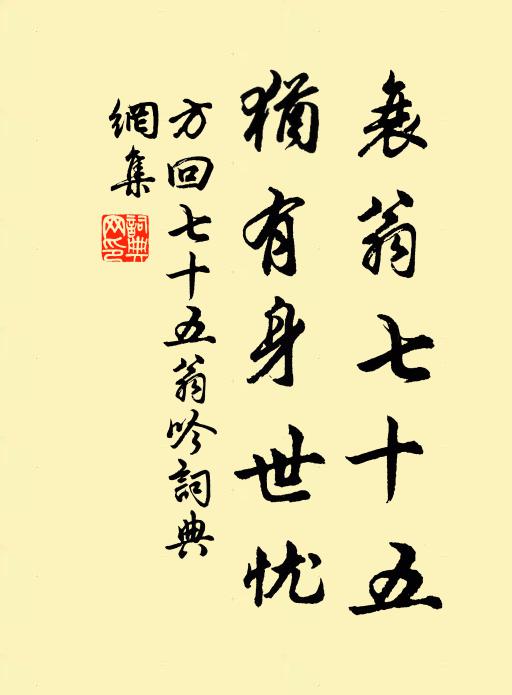 衰翁七十五
猶有身世忧
方回七十五翁吟詞典
網集
詞典
网印